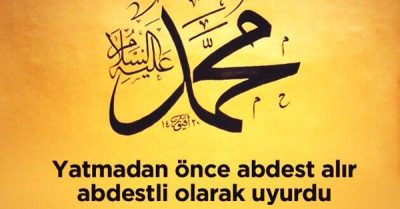 محمد
عليه السلام
Yatmadan önce abdest alır
abdestli olarak uyurdu